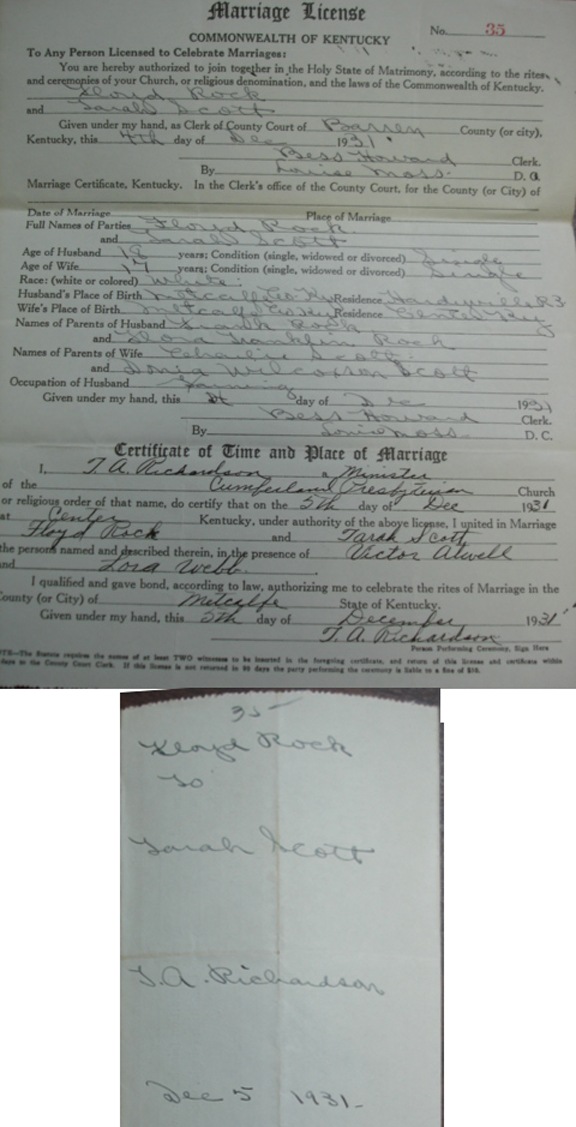 Marriage License
COMMONWEALTH OF KENTUCKY
No. 35
To Any Person Licensed to Celebrate Marriages:
You are hereby authorized to join together in the Holy State of Matrimony, according to the rites
and ceremonies of your Church, or religious denomination, and the laws of the Commonwealth of Kentucky.
Floyd Rock
and Sarah Scott
Given under my hand, as Clerk of County Court of Barren County (or city),
Kentucky, this 4th day of Dec 1931.
Bess Howard Clerk.
By Louise Moss. D. C.
Marriage Certificate, Kentucky. In the Clerk's office of the County Court, for the County (or City) of
Date of Marriage Place of Marriage
Full Names of Parties Floyd Rock.
and Sarah Scott
Age of Husband 18 years; Condition (single, widowed or divorced) Single
Age of Wife 17 years; Condition (single, widowed or divorced) Single
Race: (white or colored) White.
Husband's Place of Birth Metcalfe Co Ky Residence Hardyville R3
Wife's Place of Birth Metcalfe Co Ky Residence Center Ky
Names of Parents of Husband Frank Rock
and Flora Franklin Rock
Names of Parents of Wife Charlie Scott.
and Donia Wilcoxson Scott
Occupation of Husband Farming
Given under my hand, this day of Dec 1931
Bess Howard Clerk.
By Moss. D. C.
Certificate of Time and Place of Marriage
I, T. A. Richardson a Minister
of the Cumberland Presbyterian Church
or religious order of that name, do certify that on the 5th day of Dec 1931
at Center Kentucky, under authority of the above license, I united in Marriage
Floyd Rock and Sarah Scott
the persons named and described therein, in the presence of Victor Atwell
and Lora Webb.
I qualified and gave bond, according to law, authorizing me to celebrate the rites of Marriage in the
County (or City) of Metcalfe State of Kentucky.
Given under my hand, this 5th day of December 1931
T. A. Richardson
Person Performing Ceremony, Sign Here
NOTE—The Statute requires the names of at least TWO witnesses to be inserted in the foregoing certificate, and return of this license and certificate within
days to the County Court Clerk. If this license is not returned in days the party performing the ceremony is liable to a fine of
35
Floyd Rock
To
Sarah Scott
T. A. Richardson
Dec 5 1931